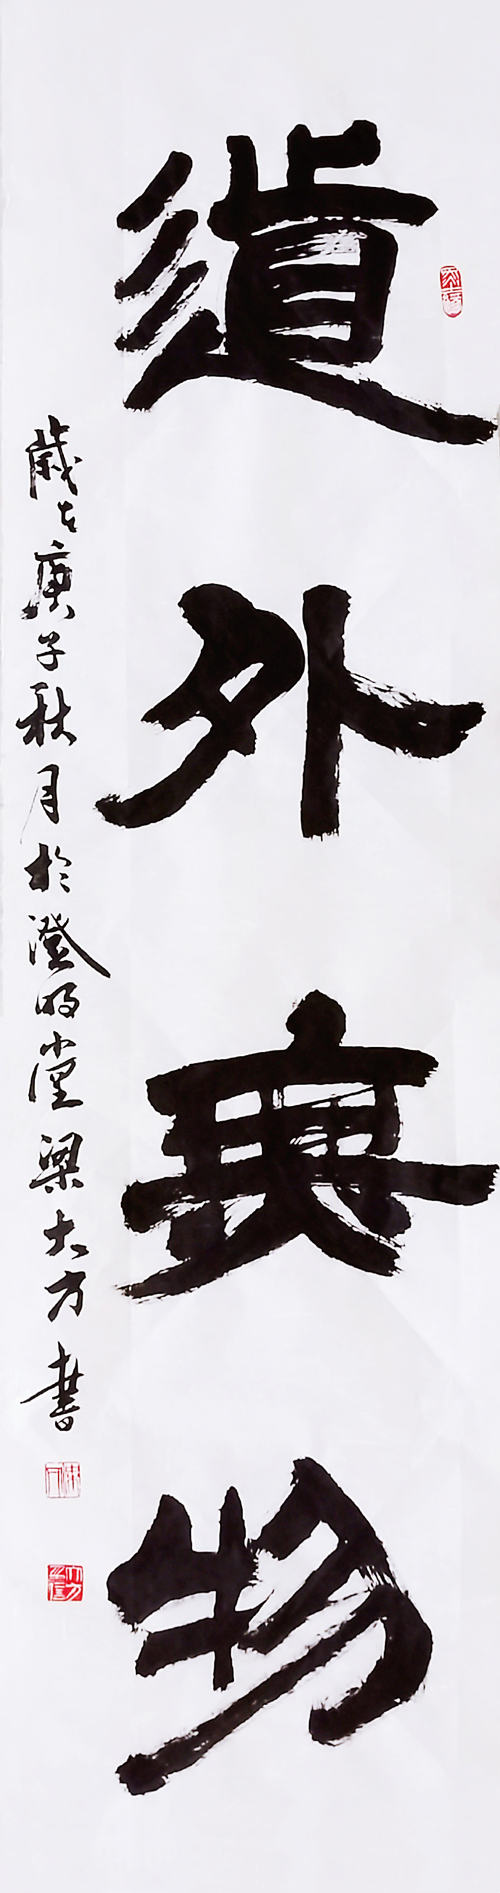 道外無物
歲在庚子秋月於澄明堂梁大方書